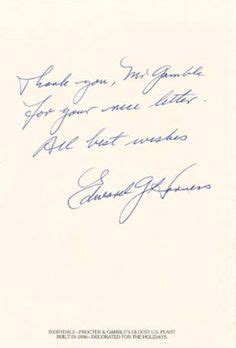 Thank you, Mr Gamble
for your nice letter.
All best wishes
Edward G. Harness
IVORYDALE—PROCTER & GAMBLE'S OLDEST U.S. PLANT
BUILT IN 1886—DECORATED FOR THE HOLIDAYS.